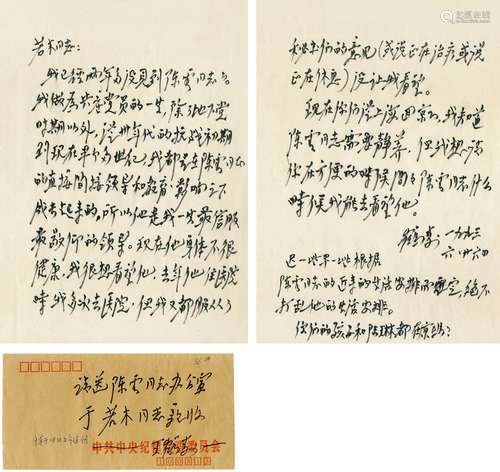 若木同志：
我已经两年多没见到陈云同志了。
我做为共产党员的一生，除地下党
时期以外，从卅年代的抗战初期
到现在半个多世纪，我都是在陈云同志
的直接间接领导和教育、影响之下
成长起来的，所以他是我一生最信服
最敬仰的领导。现在他身体不很
健康，我很想看望他，去年他住医院
时我多次去医院，但我又都服从了
秘书们的意见（或说正在治疗或说
正在休息）没让我看望。
现在你们从上海回京了，我知道
陈云同志需要静养，但我想请
你在方便的时候问问陈云同志，什么
时候我能去看望他。
一九九三
六·廿六日
迟一些早一些根据
陈云同志的近来的生活安排而定，绝不
打乱他的生活安排。
你们的孩子和
都
请送陈云同志办公室
于若木同志亲收
中共中央纪
委员会